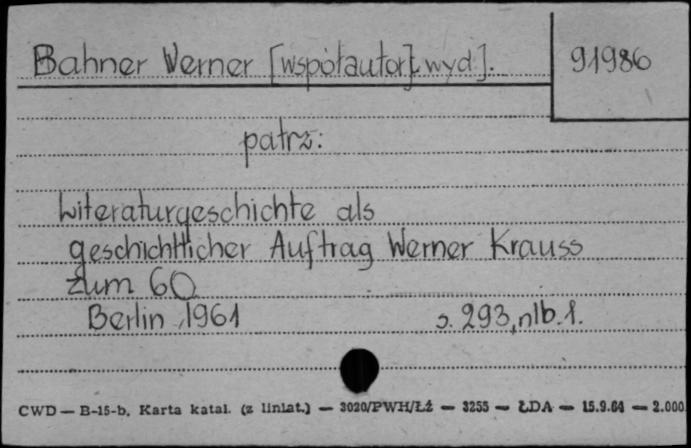 Bahner Werner [współautor i wyd.].
91986
patrz:
Literaturgeschichte als
geschichtlicher Auftrag Werner Krauss
zum 60
Berlin 1961 s. 293, nlb. 1.
CWD — B-15-b. Karta katal. (z liniat.) — 3020/PWH/Łź — 3255 — ŁDA — 15.9.64 — 2.000